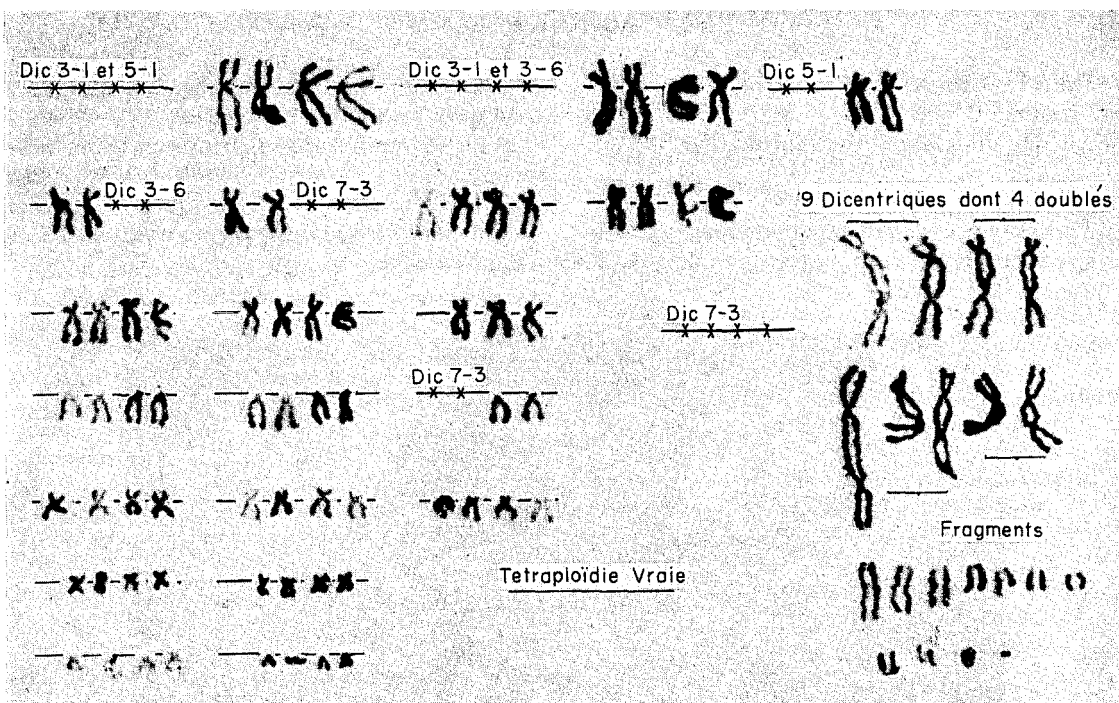 Dic 3-1 et 5-1
Dic 3-1 et 3-6
Dic 5-1
Dic 3-6
Dic 7-3
9 Dicentriques dont 4 doublés
Dic 7-3
Dic 7-3
Fragments
Tetraploïdie Vraie